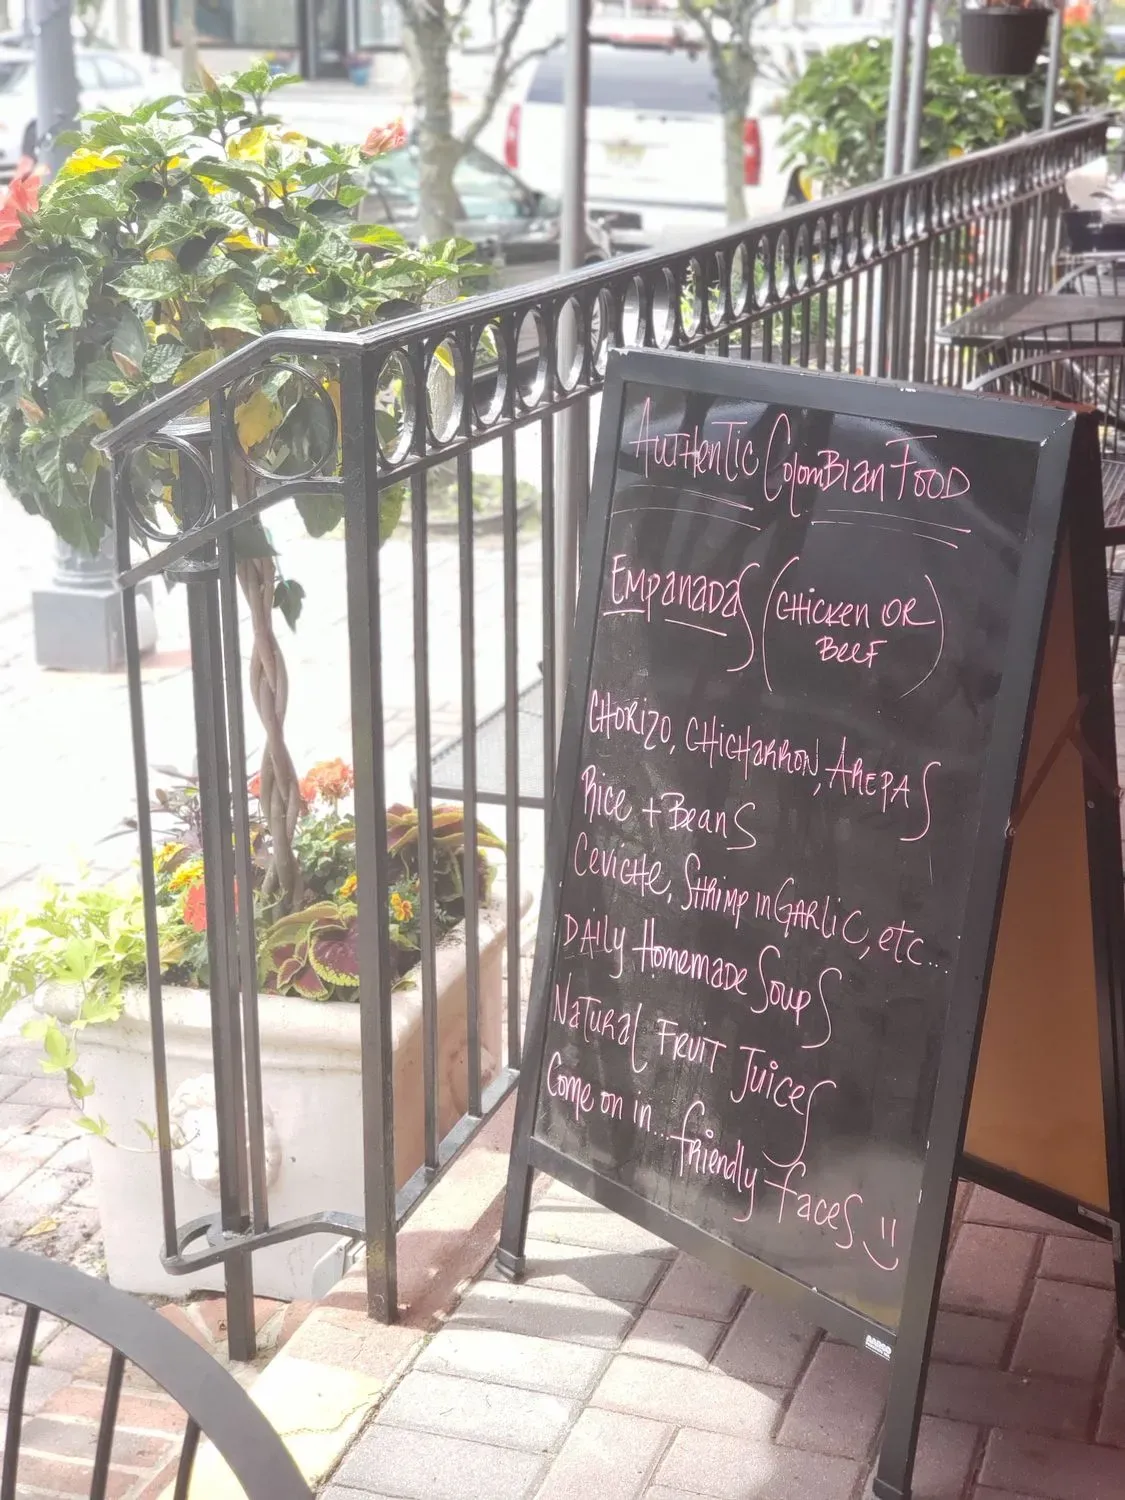 Authentic Colombian Food
Empanadas (Chicken or
Beef)
Chorizo, Chicharron, Arepas
Rice + Beans
Ceviche, Shrimp in Garlic, etc...
Daily Homemade Soups
Natural Fruit Juices
Come on in... friendly faces